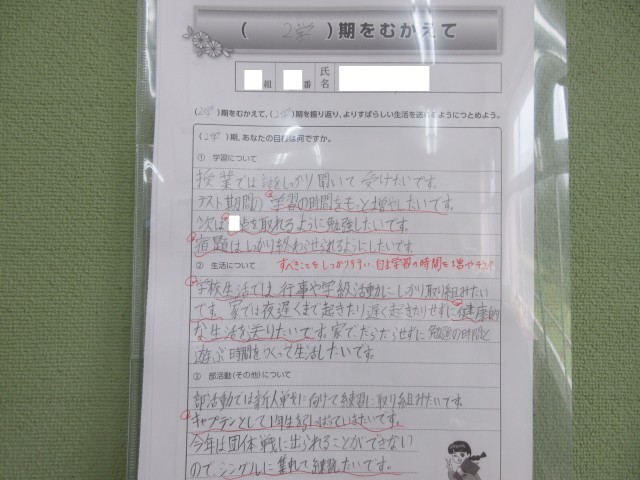 ( 2学 )期をむかえて
組 番 氏名
(2学)期をむかえて、(2学)期を振り返り、よりすばらしい生活を送れるようにつとめよう。
(2学)期、あなたの目標は何ですか。
① 学習について
授業では話をしっかり聞いて受けたいです。
テスト期間の学習の時間をもっと増やしたいです。
次は 点を取れるように勉強したいです。
宿題はしっかり終わらせられるようにしたいです。
② 生活について
すべきことをしっかり行い、自主学習の時間を増やそう
学校生活では、行事や学級活動にしっかり取り組みたい
です。家では夜遅くまで起きたり遅く起きたりせずに健康的
な生活を送りたいです。家でだらだらせずに勉強の時間と
遊ぶ時間をつくって生活したいです。
③ 部活動(その他)について
部活動では新人戦に向けて練習に取り組みたいです。
キャプテンとして1年生を引っぱっていきたいです。
今年は団体戦に出られることができない
ので、シングルに集中して練習したいです。